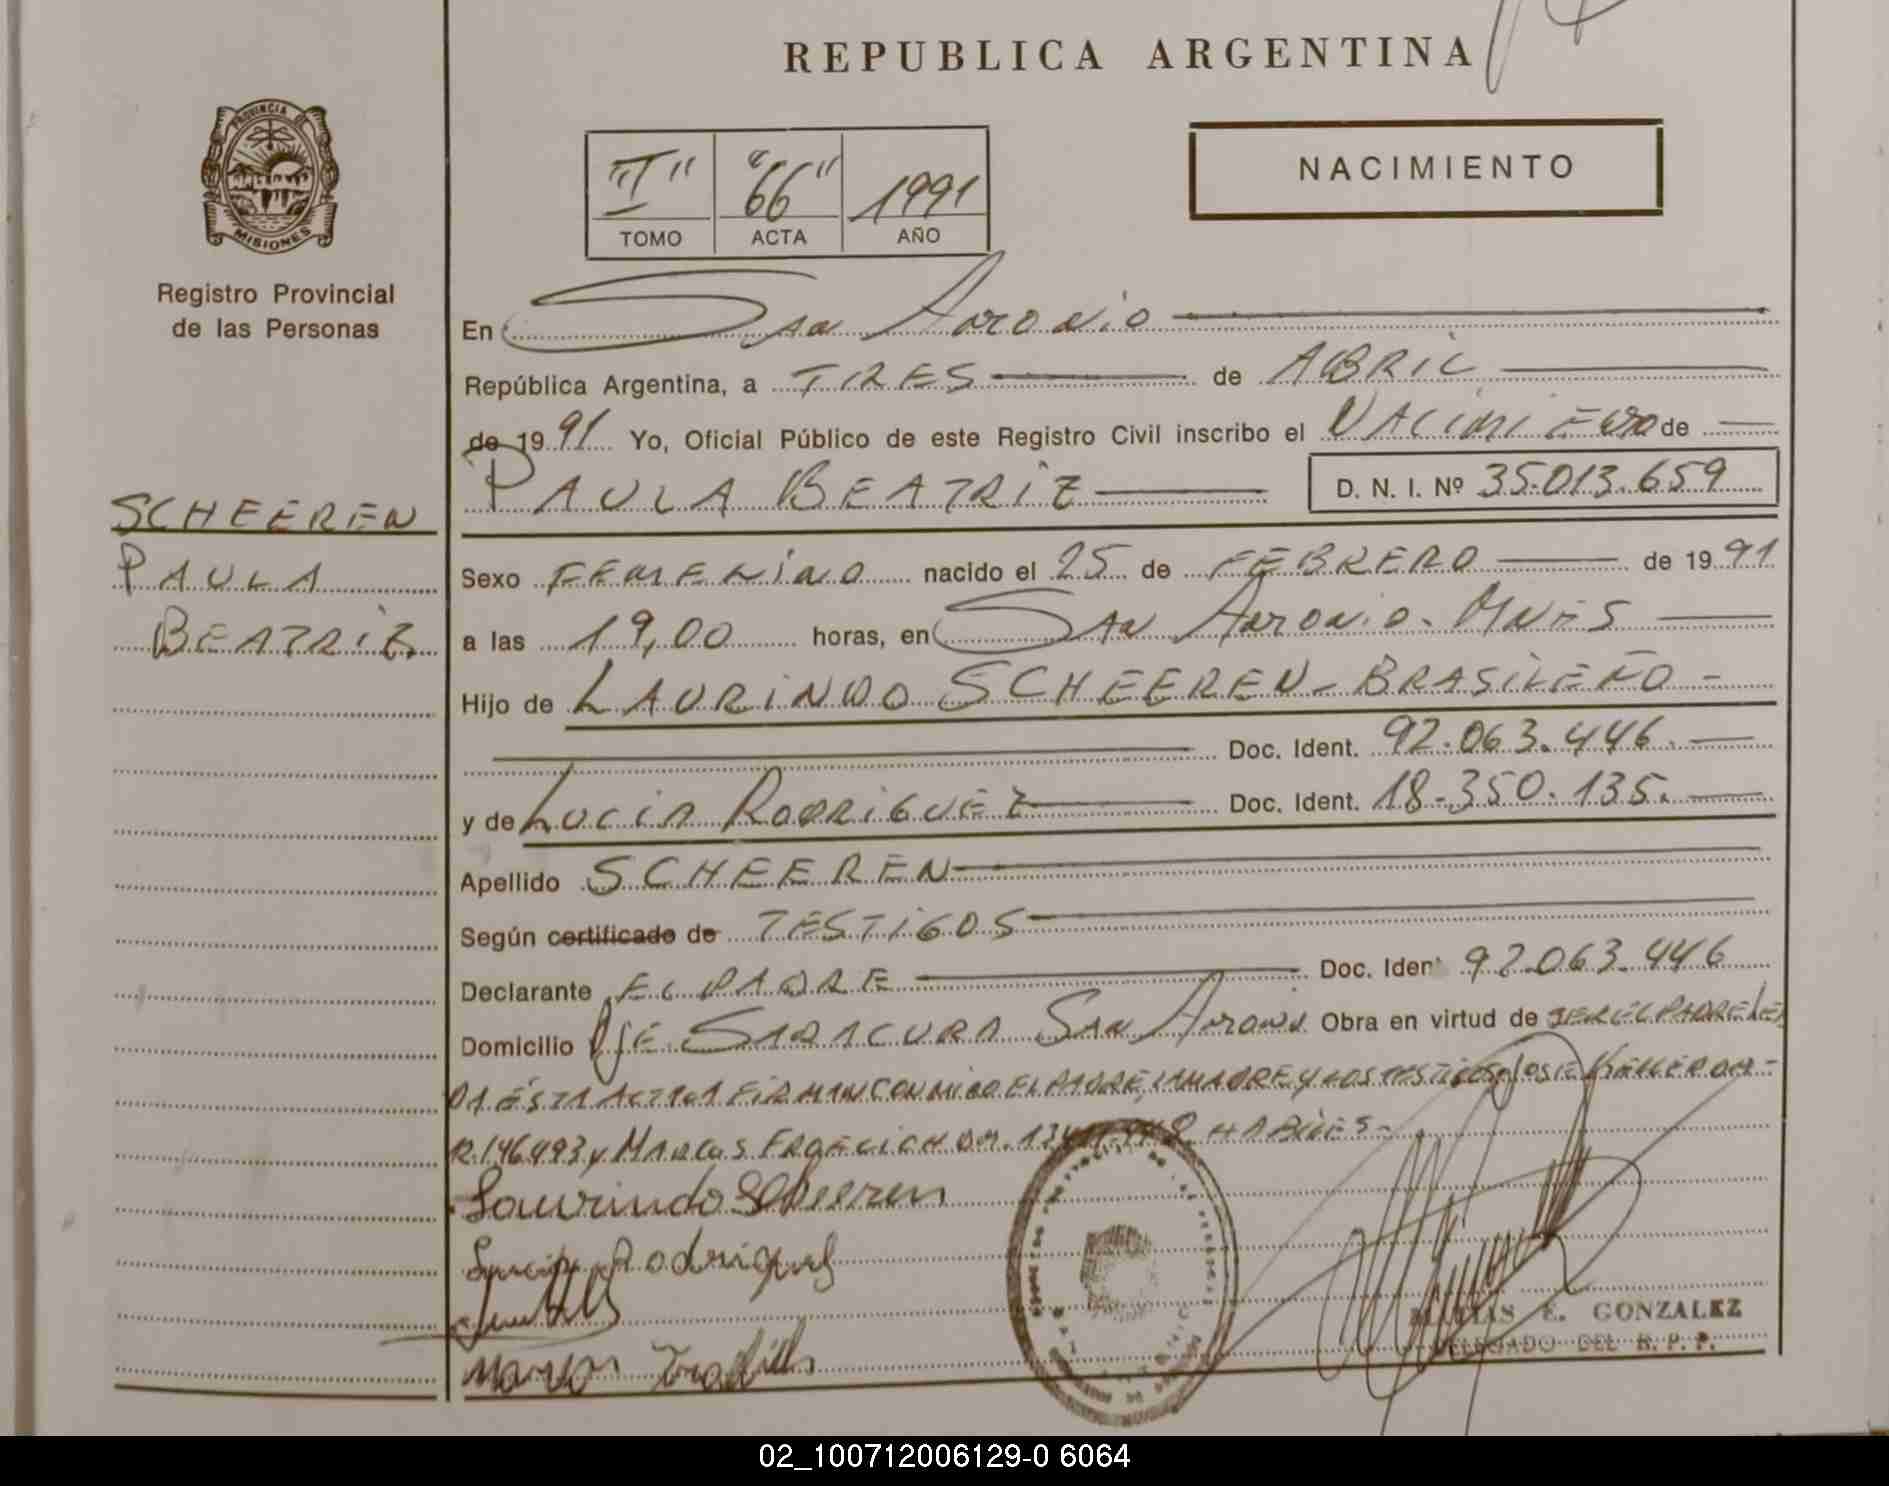 REPUBLICA ARGENTINA
PROVINCIA DE
MISIONES
Registro Provincial
de las Personas
"I" "66" 1991
TOMO ACTA AÑO
NACIMIENTO
En San Antonio
República Argentina, a TRES de ABRIL
de 1991 Yo, Oficial Público de este Registro Civil inscribo el NACIMIENTO de
PAULA BEATRIZ D. N. I. Nº 35.013.659
SCHEEREN
PAULA
BEATRIZ.
Sexo FEMENINO nacido el 25 de FEBRERO de 1991
a las 19,00 horas, en San Antonio. Mnes
Hijo de LAURINDO SCHEEREN - BRASILEÑO -
Doc. Ident. 92.063.446.
y de LUCIA RODRIGUEZ Doc. Ident. 18.350.135.
Apellido SCHEEREN
Según certificado de TESTIGOS
Declarante EL PADRE Doc. Iden 92.063.446
Domicilio Pje SARACURA San Antonio Obra en virtud de SER EL PADRE LEI
DA ÉSTA ACTA LA FIRMAN CONMIGO EL PADRE, LA MADRE Y LOS TESTIGOS JOSE
R.146.493 y MARCOS FROELICH HABILES -
Laurindo Scheeren
Lucia Rodriguez
Marcos
E. GONZALEZ
DELEGADO DEL R. P. P.
02_100712006129-0 6064